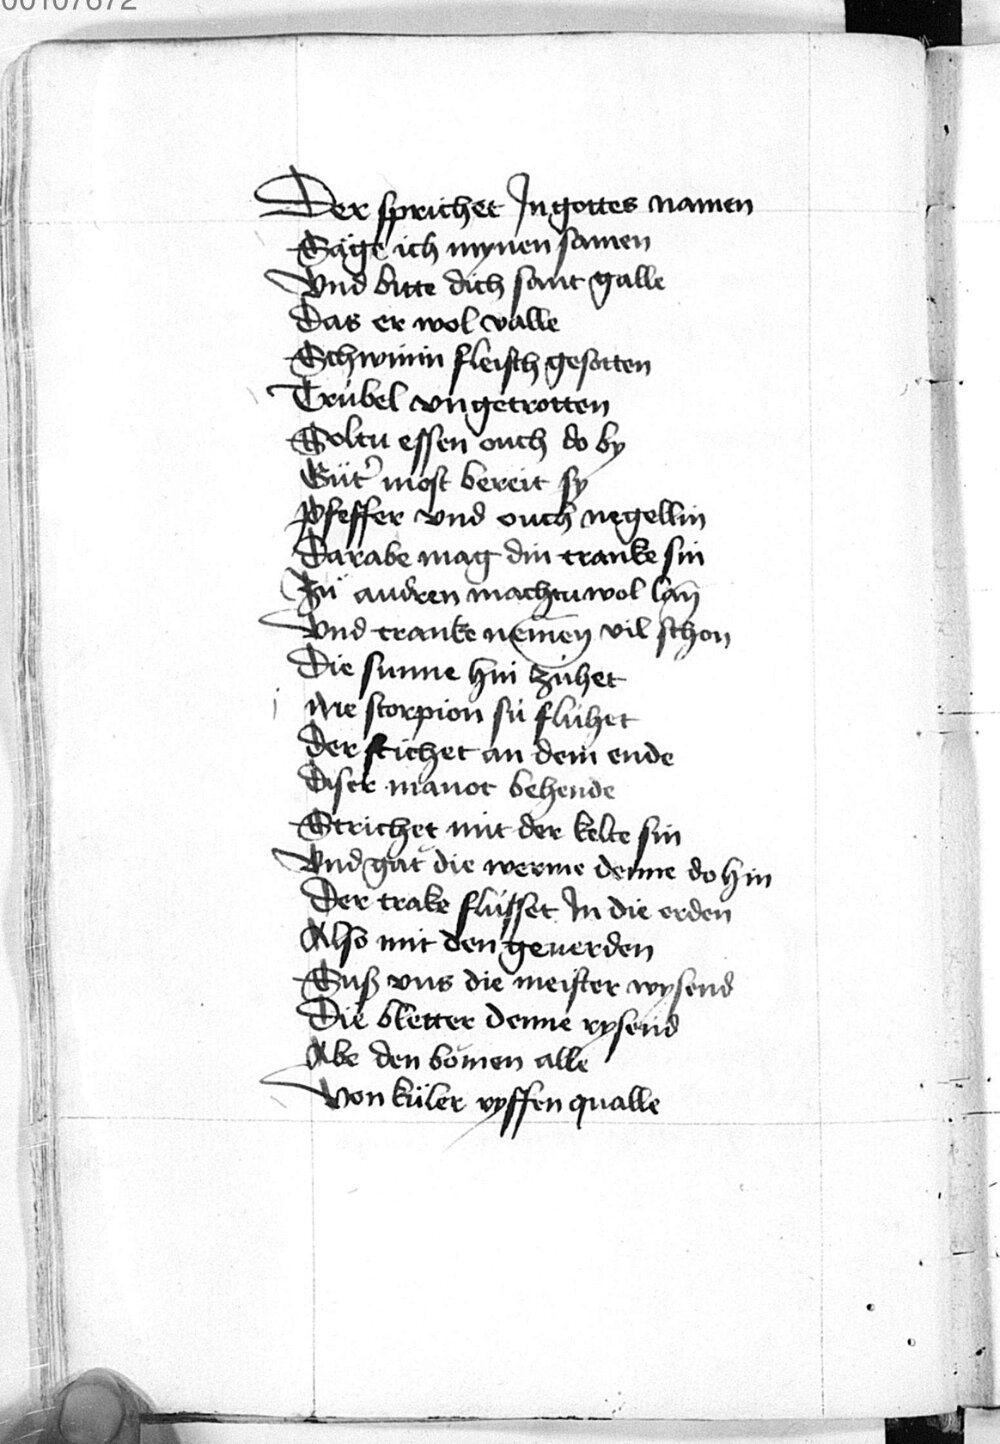 00107672
Der sprichet In gottes namen
Säge ich mynen samen
Vnd bitte dich sant galle
Das er wol valle
Schwinin fleisch gesotten
Trúbel vngetrotten
Soltu essen ouch do by
Gůt most bereit sy
Pfeffer vnd ouch negellin
Darabe mag din tranke sin
Zů andren machtu wol lan
Vnd tranke nemen vil schon
Die sunne hin zúhet
Me scorpion sú flúhet
Der stichet an dem ende
Diser manot behende
Strichet mit der kelte sin
Vnd gat die werme denne do hin
Der trake flússet In die erden
Also mit den geuerden
Suß vns die meister wysend
Die bletter denne rysend
Abe den bömen alle
Von küler ryffen qualle